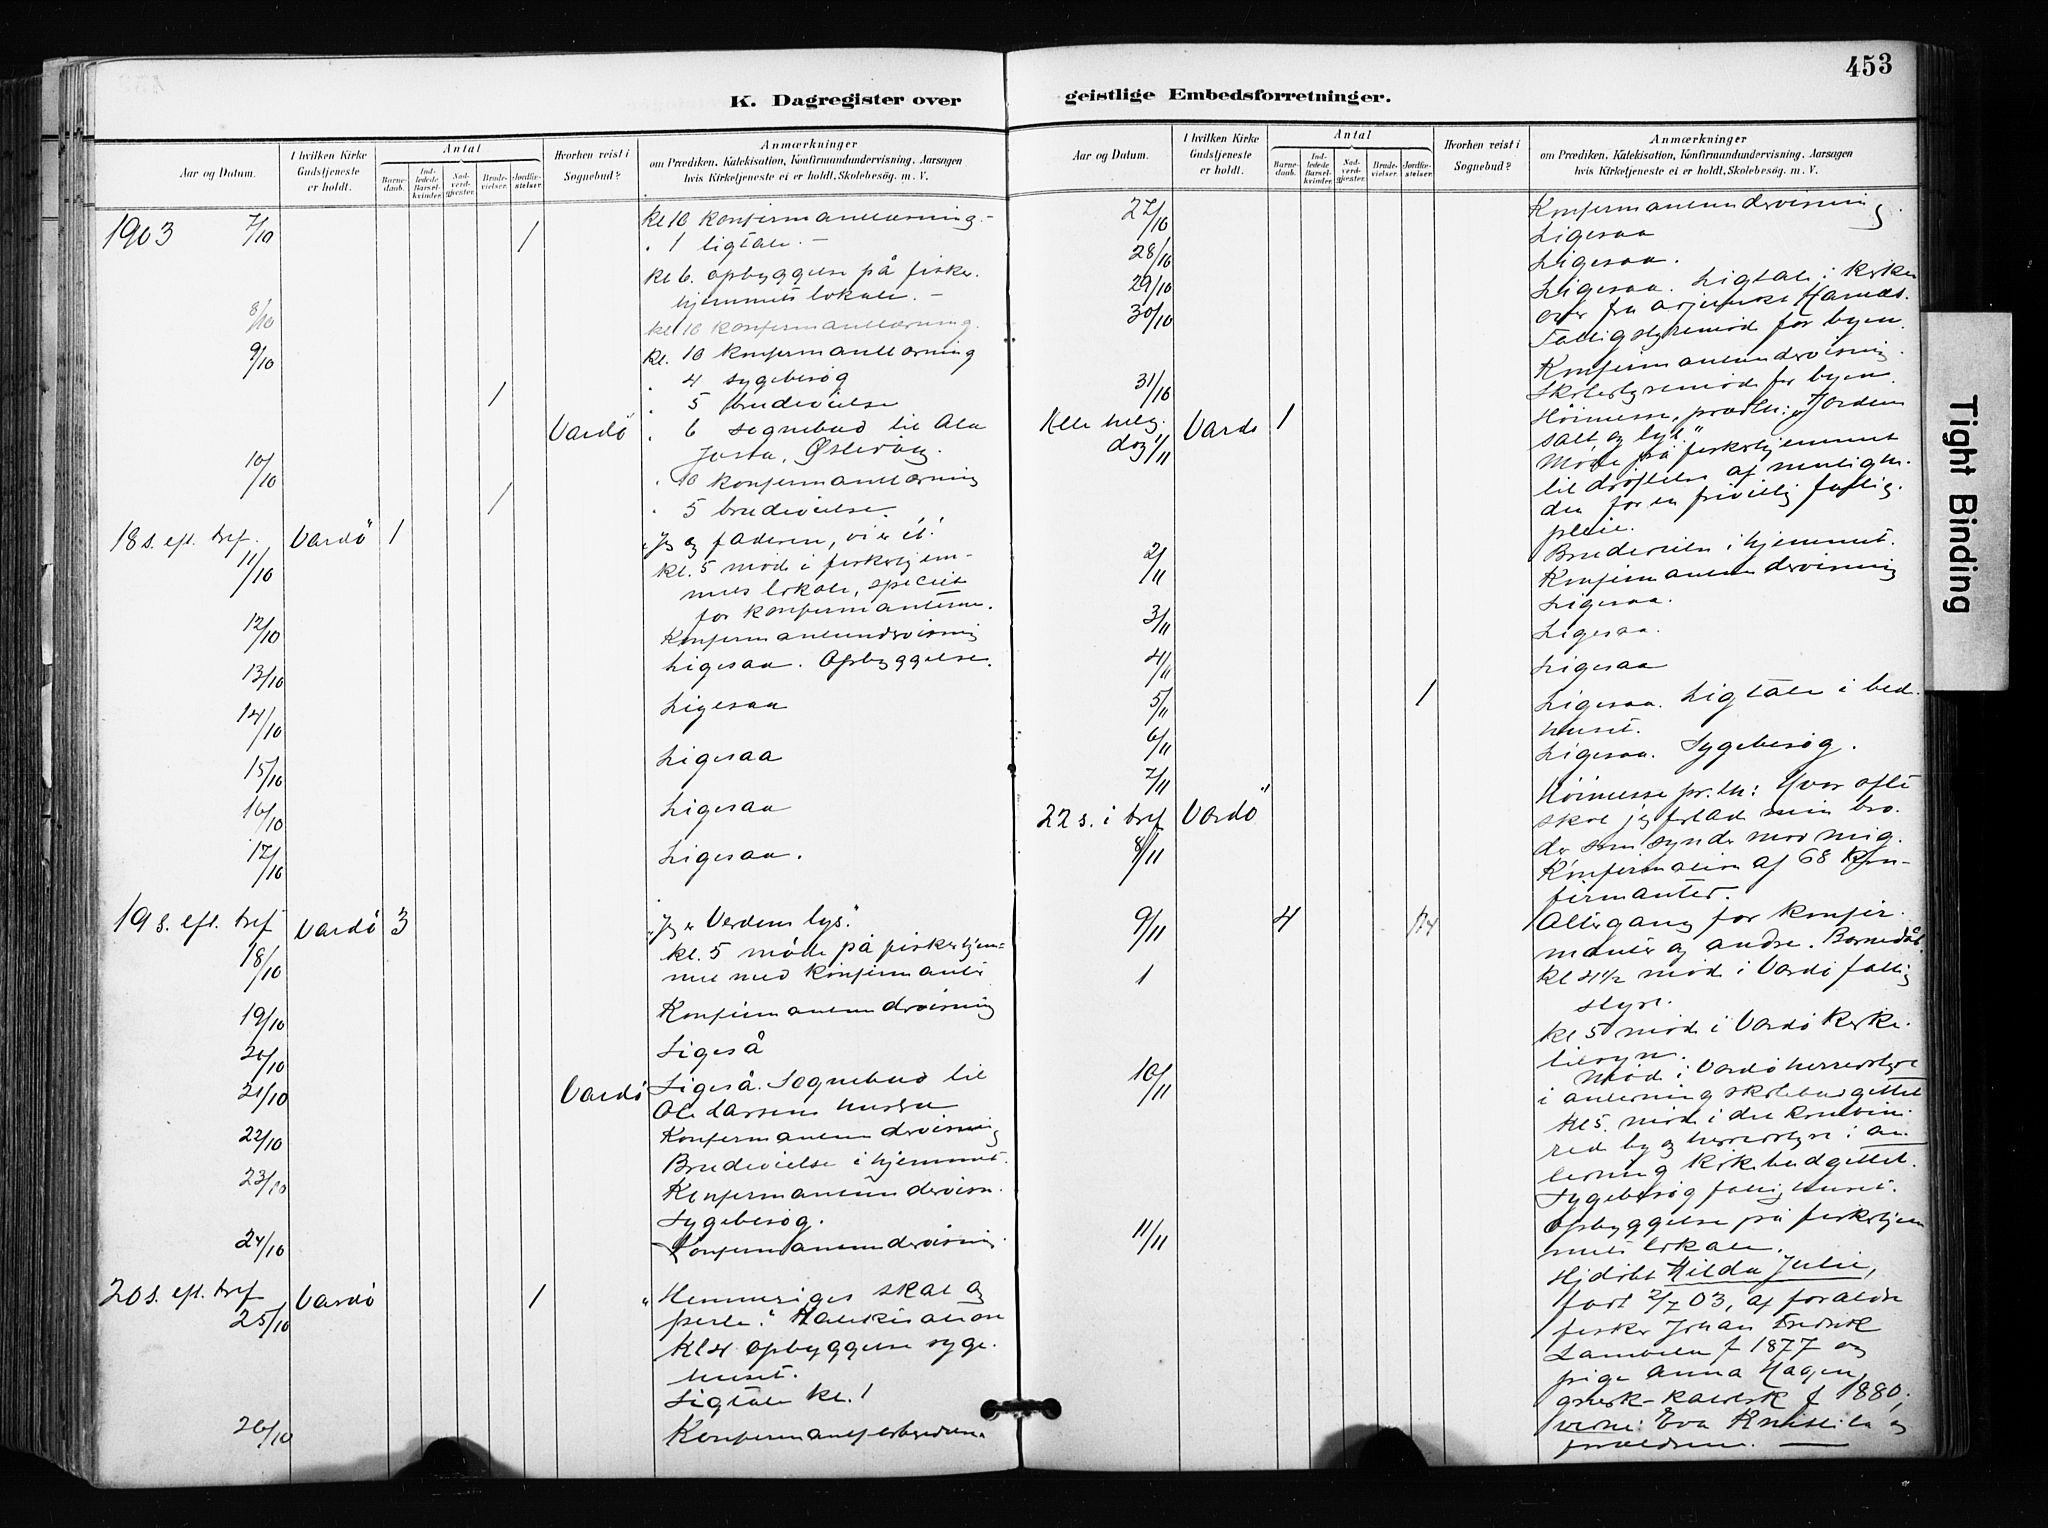 453
K. Dagregister over geistlige Embedsforretninger.
Aar og Datum.
I hvilken Kirke Gudstjeneste er holdt.
Antal
Barnedaab.
Indledede Barselkvinder.
Nadverdgjester.
Brudevielser.
Jordfæstelser.
Hvorhen reist i Sognebud?
Anmærkninger
om Prædiken, Katekisation, Konfirmandundervisning, Aarsagen
hvis Kirketjeneste ei er holdt, Skolebesøg. m. V.
1903 7/10 kl 10 konfirmantlærning. -
1 " 1 ligtale. -
kl 6. opbyggelse på fisker-
hjemmets lokale. -
8/10 kl 10 konfirmantlærning.
9/10 kl. 10 konfirmantlærning
" 4 sygebesøg
1 " 5 brudevielse
Vardö " 6 sognebud til
Østervåg.
10/10 " 10 konfirmantlærning
1 " 5 brudevielse.
18 s. eft. tref. Vardö 1 "Jeg og faderen, vi er ét."
11/10 kl. 5 møde i fiskerhjem-
mets lokale, specielt
for konfirmanterne.
12/10 Konfirmantundervisning
Ligesaa. Opbyggelse.
13/10
14/10 Ligesaa
15/10 Ligesaa
16/10 Ligesaa
17/10 Ligesaa.
19 s. eft. tref Vardö 3 "Jeg er Verdens lys."
18/10 kl. 5 møde på fiskerhjem-
met med konfirmanter
19/10 Konfirmantundervisning
20/10 Ligeså
21/10 Vardö Ligeså. Sognebud til
Ole Larsens hustru
22/10 Konfirmantundervisning
Brudevielse i hjemmet.
23/10 Konfirmantundervisn.
Sygebesøg.
24/10 Konfirmantundervisning.
20 s. eft. tref Vardö 1 "Himmeriges skat og
25/10 perle." Katekisation
Kl 4 opbyggelse syge-
huset.
Ligtale kl. 1
26/10
Aar og Datum.
I hvilken Kirke Gudstjeneste er holdt.
Antal
Barnedaab.
Indledede Barselkvinder.
Nadverdgjester.
Brudevielser.
Jordfæstelser.
Hvorhen reist i Sognebud?
Anmærkninger
om Prædiken, Katekisation, Konfirmandundervisning, Aarsagen
hvis Kirketjeneste ei er holdt, Skolebesøg. m. V.
27/10 Konfirmantundervisning.
Ligesaa
28/10 Ligesaa.
29/10 Ligesaa. Ligtale i kirken
30/10 over fru
Fattigstyremøde for byen.
Konfirmantundervisning.
31/10 Skolestyremøde for byen.
Alle helg. Vardö 1 Høimesse, præd.: "Jordens
dag 1/11 salt og lys."
Møde på fiskerhjemmet
til drøftelse af mulighe-
den for en frivillig fattig-
pleie.
2/11 Brudevielse i hjemmet.
Konfirmantundervisning
Ligesaa.
3/11 Ligesaa.
4/11 Ligesaa
5/11 1 Ligesaa. Ligtale i bed-
huset.
6/11 Ligesaa. Sygebesøg.
7/11
22 s. i tref Vardö Høimesse pr. tx: Hvor ofte
8/11 skal jeg forlade min bro-
der som synder mod mig.
Konfirmation af 68 kon-
firmanter.
9/11 4 Altergang for konfir-
manter og andre. Barnedåb
1 kl 4 1/2 møde i Vardö fattig
styre.
kl 5 møde i Vardö kirke-
tilsyn.
10/11 møde i Vardö herredsstyre
i anledning skolebudgettet
kl 5. møde i det kombine-
rede by og herredsstyre i an
ledning kirkebudgettet.
Sygebesøg fattighuset.
11/11 Opbyggelse på fiskerhjem
mets lokale.
Hjdøbt Hilda Julie,
født 2/7 03, af forældre
fisker Johan Fredrik
f 1877 og
pige Anna Hagen
f 1880.
vidne: Eva og
forældrene.
Tight Binding